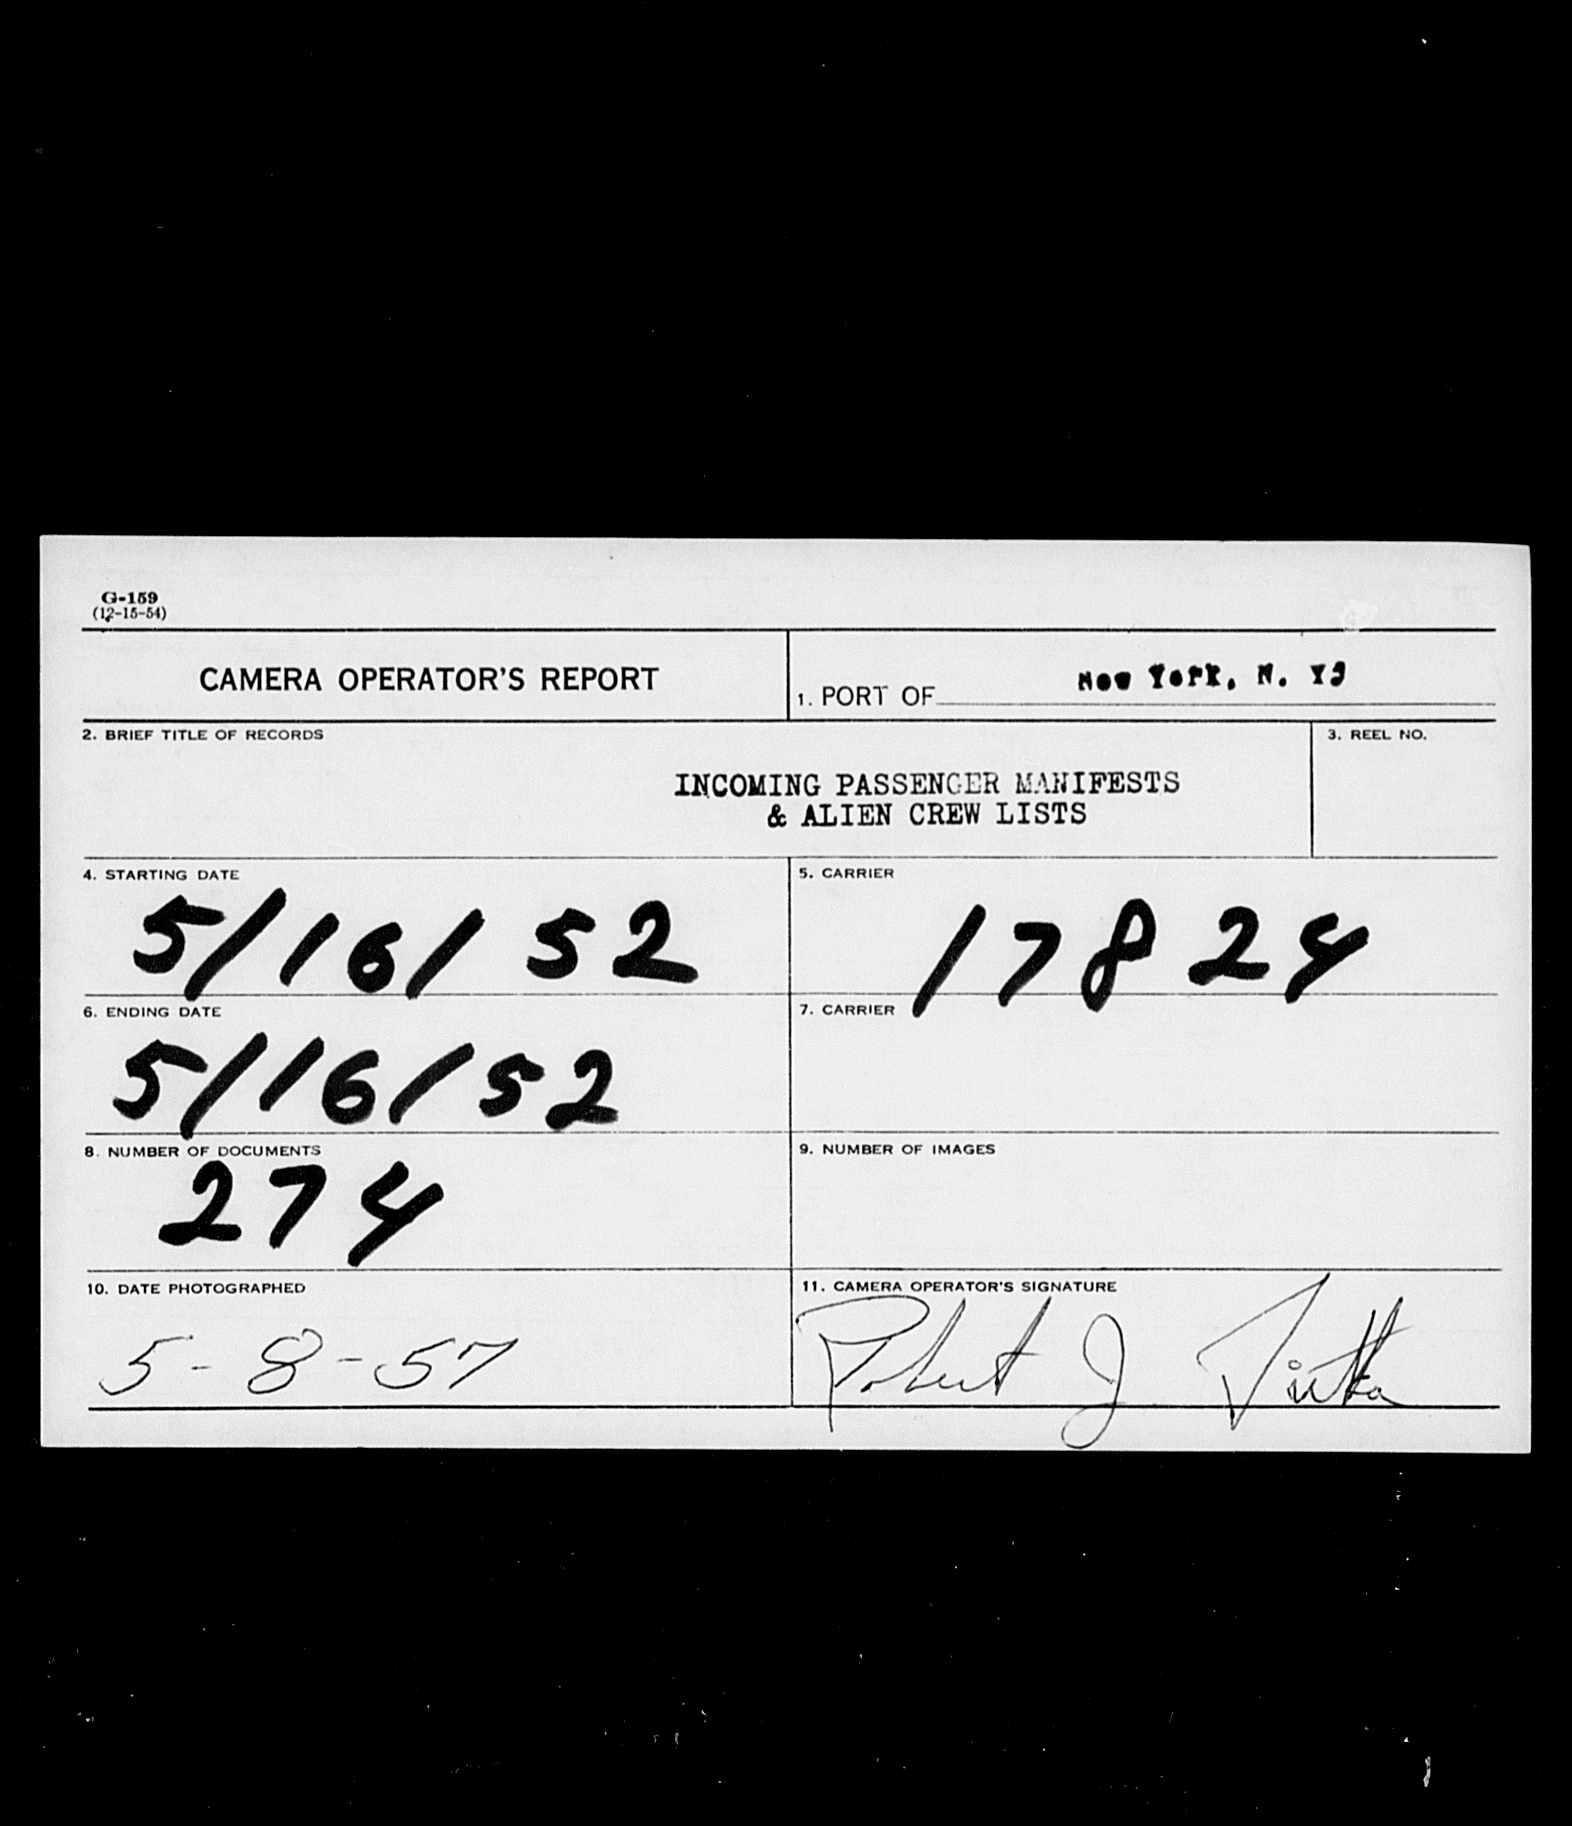 G-159
(12-15-54)
CAMERA OPERATOR'S REPORT
1. PORT OF New York, N. Y.
2. BRIEF TITLE OF RECORDS
3. REEL NO.
INCOMING PASSENGER MANIFESTS
& ALIEN CREW LISTS
4. STARTING DATE
5/16/52
5. CARRIER
17824
6. ENDING DATE
5/16/52
7. CARRIER
8. NUMBER OF DOCUMENTS
274
9. NUMBER OF IMAGES
10. DATE PHOTOGRAPHED
5-8-57
11. CAMERA OPERATOR'S SIGNATURE
Robert J